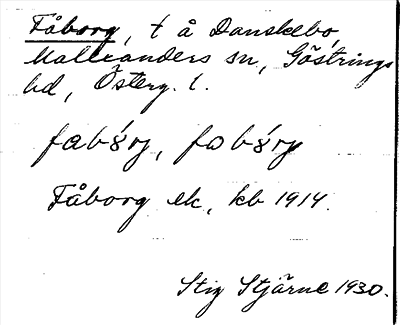 Fåborg, t å Danskebo,
Mallexanders sn, Göstrings
hd, Österg. l.
Fåborg ek, kb 1914.
Stig Stjärne 1930.